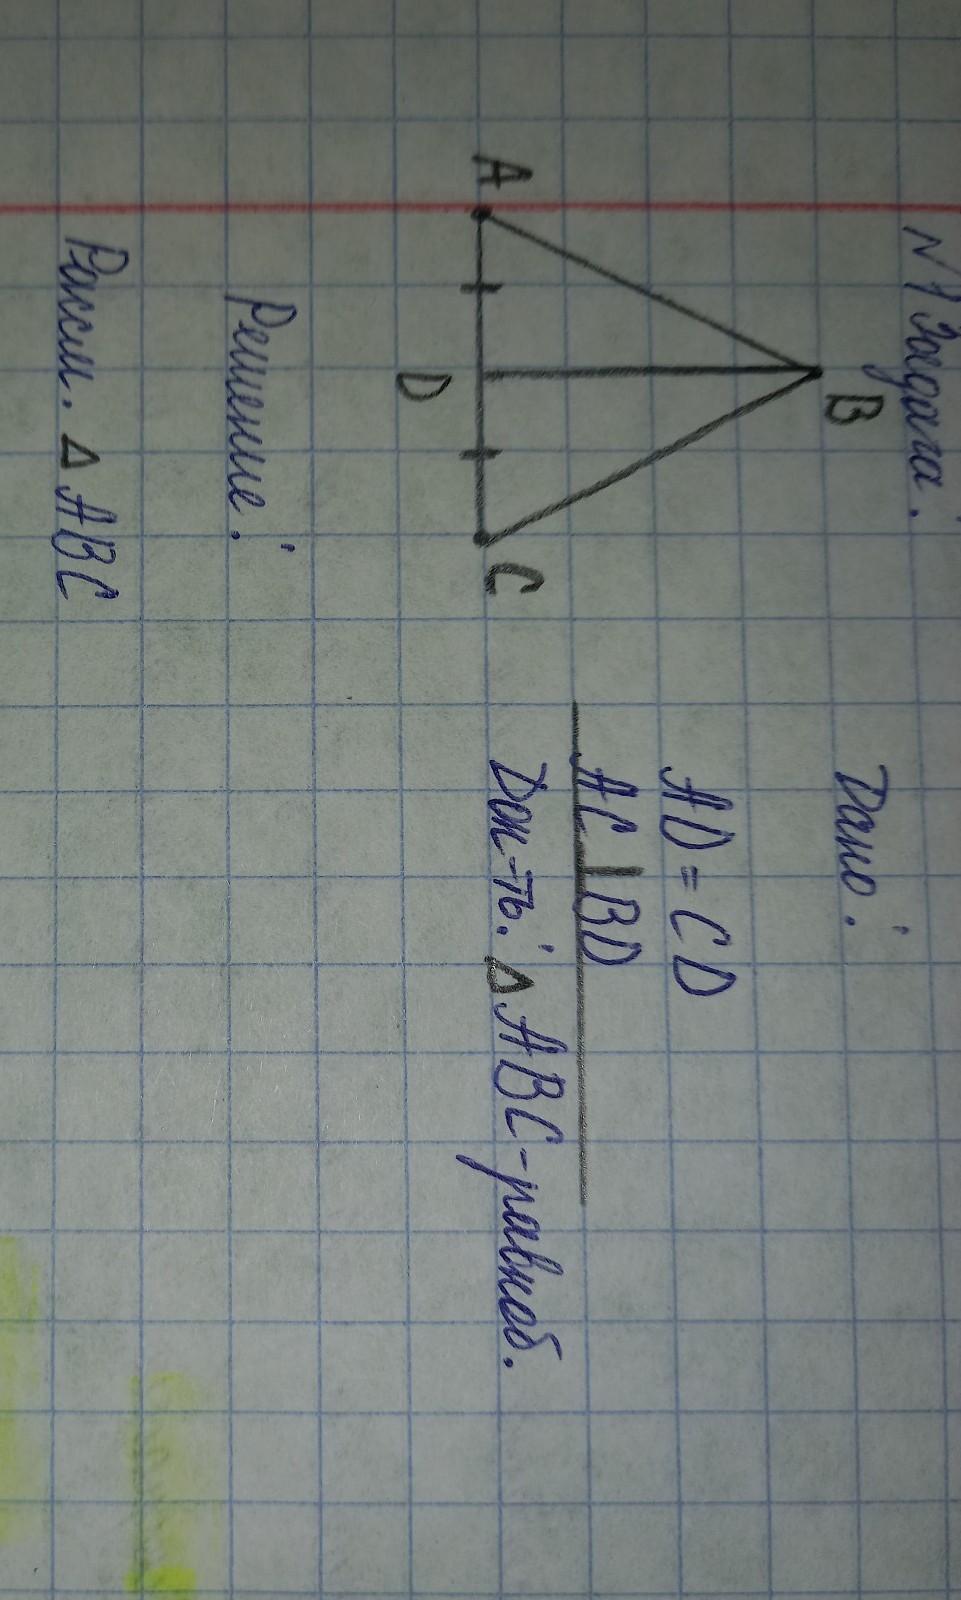 N1 Задача:
B
A
D
C
Дано:
AD = CD
AC ⊥ BD
Док-ть: △ ABC - равноб.
Решение:
Рассм. △ ABC